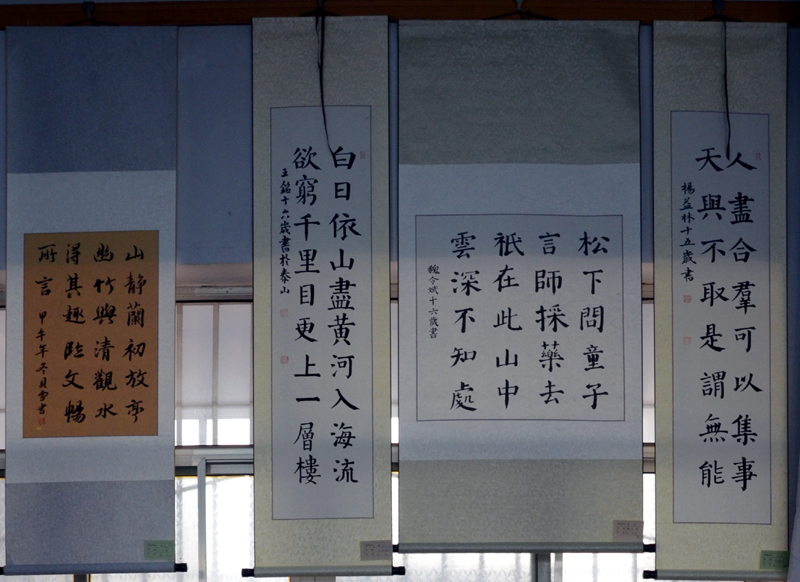 人盡合羣可以集事
天與不取是謂無能
楊益林十五歲書
松下問童子
言師採藥去
祇在此山中
雲深不知處
魏令斌十六歲書
白日依山盡黃河入海流
欲窮千里目更上一層樓
王銘十六歲書於泰山
山静蘭初放亭
幽竹與清觀水
得其趣臨文暢
所言 甲午年冬月書